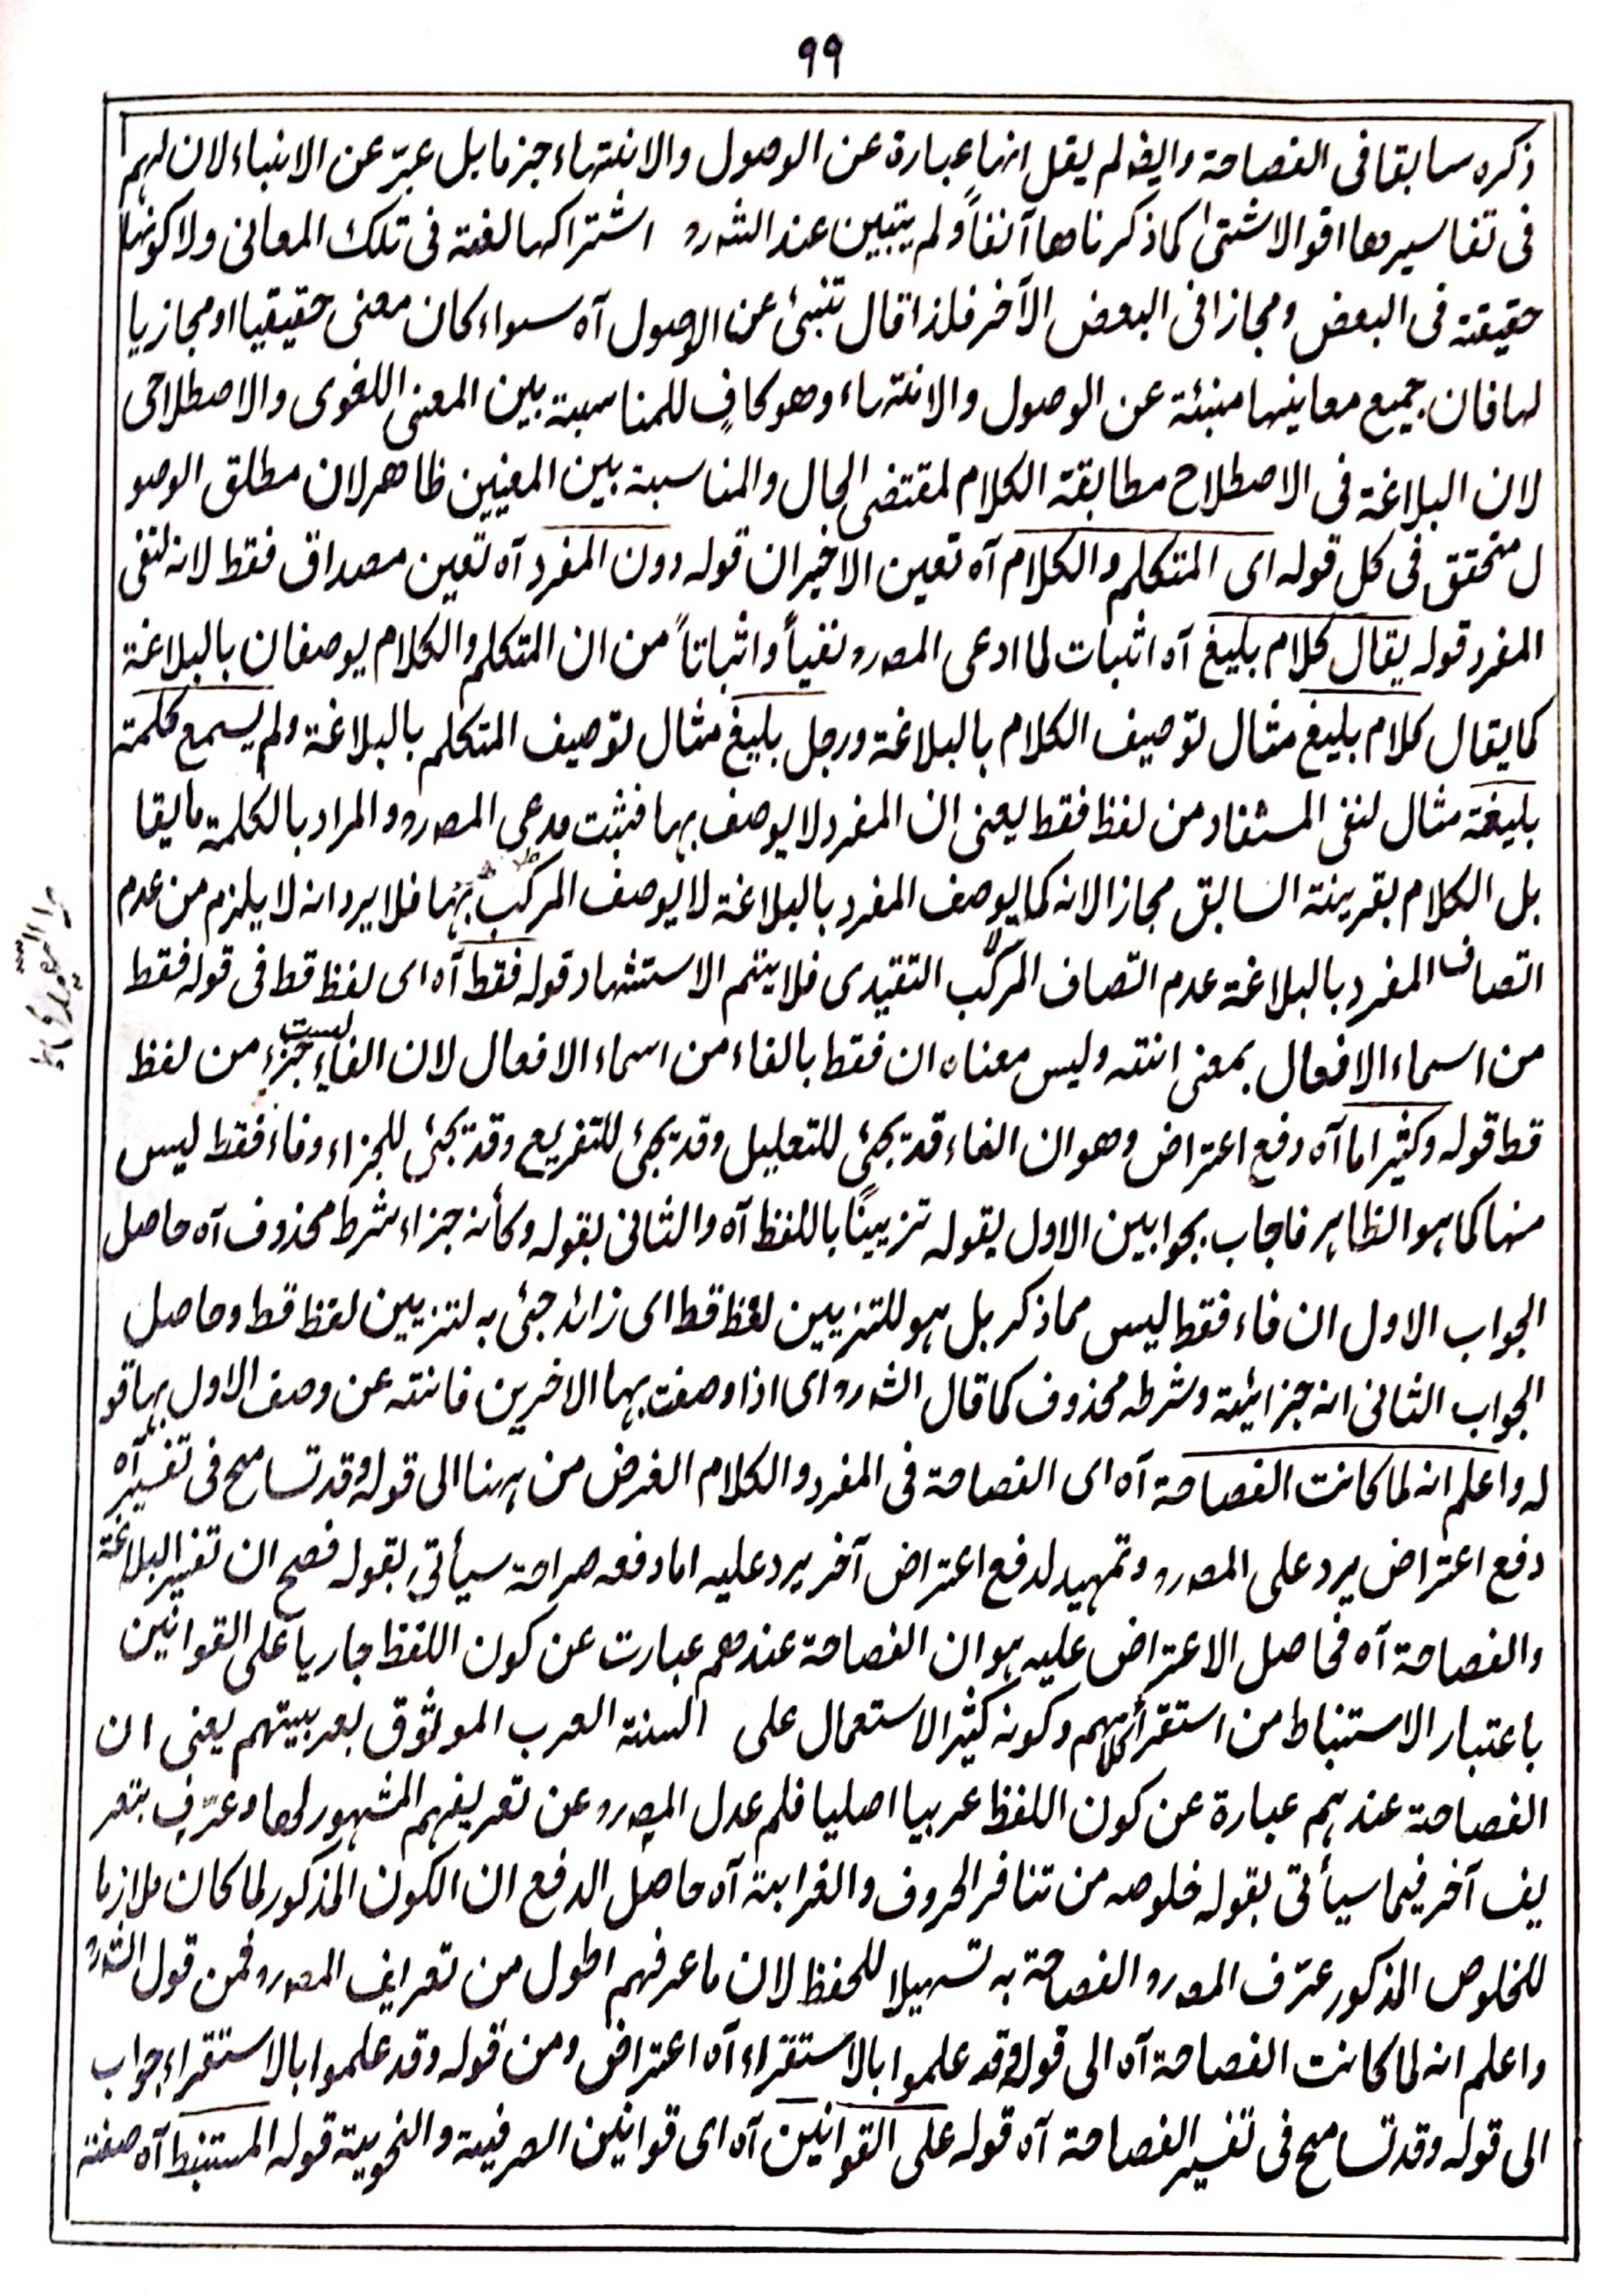 ۹۹
ذكره سابقا فى الفصاحة وايضا لم يقل انها عبارة عن الوصول والانتهاء جزما بل عبّر عن الانباء لان لهم
فى تفاسيرها اقوالا شتىٰ كما ذكرناها آنفاً ولم يتبين عند الشہ رہ اشتراكها لغة فى تلك المعانى ولا كونها
حقيقة فى البعض ومجازا فى البعض الآخر فلذا قال تنبئ عن الوصول آه سواء كان معنى حقيقيا او مجازيا
لها فان جميع معانيها منبئة عن الوصول والانتهاء وهو كافٍ للمناسبة بين المعنى اللغوى والاصطلاحى
لان البلاغة فى الاصطلاح مطابقة الكلام لمقتضى الحال والمناسبة بين المعنيين ظاهر لان مطلق الوصو
ل متحقق فى كل قوله اى المتكلم والكلام آه تعين الاخيران قوله دون المفرد آه تعين مصداق فقط لانه لنفى
المفرد قوله يقال كلام بليغ آه اثبات لما ادعى المصہ رہ نفياً واثباتاً من ان المتكلم والكلام يوصفان بالبلاغة
كما يقال كلام بليغ مثال توصيف الكلام بالبلاغة ورجل بليغ مثال توصيف المتكلم بالبلاغة ولم يسمع كلمة
بليغة مثال لنفى المستفاد من لفظ فقط يعنى ان المفرد لا يوصف بها فثبت مدعى المصہ رہ والمراد بالكلمة ما يقا
بل الكلام بقرينة السابق مجازا لانه كما يوصف المفرد بالبلاغة لا يوصف المركب بها فلا يرد انه لا يلزم من عدم
اتصاف المفرد بالبلاغة عدم اتصاف المركب التقيدى فلا يتم الاستشهاد قوله فقط آه اى لفظ قط فى قوله فقط
من اسماء الافعال بمعنى انته وليس معناه ان فقط بالفاء من اسماء الافعال لان الفاء ليست جزء من لفظ
قط قوله وكثيرا ما آه دفع اعتراض وهو ان الفاء قد يجئ للتعليل وقد يجئ للتفريع وقد يجئ للجزاء وفاء فقط ليس
منها كما ہو الظاہر فاجاب بجوابين الاول بقوله تزيينًا باللفظ آه والثانى بقوله وكأنہ جزاء شرط محذوف آه حاصل
الجواب الاول ان فاء فقط ليس مما ذكر بل ہو للتزيين لفظ قط اى زائد جئ به لتزيين لفظ قط وحاصل
الجواب الثانى انه جزائية وشرطه محذوف كما قال الشہ رہ اى اذا وصفت بها الاخرين فانته عن وصف الاول بها قو
له واعلم انه لما كانت الفصاحة آه اى الفصاحة فى المفرد والكلام الغرض من ہہنا الى قوله وقد تسامح فى تفسير آه
دفع اعتراض يرد على المصہ رہ وتمهيد لدفع اعتراض آخر يرد عليه اما دفعه صراحة سيأتى بقوله فصح ان تفسير البلاغة
والفصاحة آه فحاصل الاعتراض عليه ہو ان الفصاحة عندهم عبارت عن كون اللفظ جاريا على القوانين
باعتبار الاستنباط من استقراء كلامهم وكونه كثير الاستعمال على السنة العرب الموثوق بعربيتهم يعنى ان
الفصاحة عندہم عبارة عن كون اللفظ عربيا اصليا فلم عدل المصہ رہ عن تعريفهم المشهور لها وعرّف بتعر
يف آخر فيما سيأتى بقوله خلوصه من تنافر الحروف والغرابة آه حاصل الدفع ان الكون المذكور لما كان ملازما
للخلوص المذكور عرّف المصہ رہ الفصاحة به تسهيلا للحفظ لان ما عرفهم اطول من تعريف المصہ رہ فمن قول الشہ رہ
واعلم انه لما كانت الفصاحة آه الى قوله وقد علموا بالاستقراء آه اعتراض ومن قوله وقد علموا بالاستقراء جواب
الى قوله وقد تسامح فى تفسير الفصاحة آه قوله على القوانين آه اى قوانين الصرفية والنحوية قوله المستنبط آه صفة